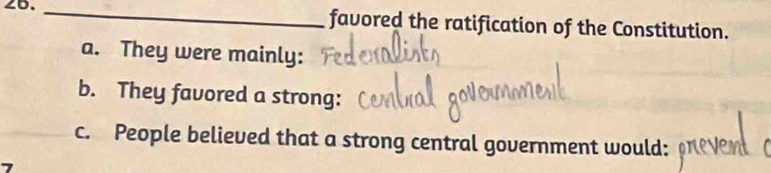 26. ____ favored the ratification of the Constitution.
a. They were mainly: Federalists
b. They favored a strong: central government
c. People believed that a strong central government would: prevent